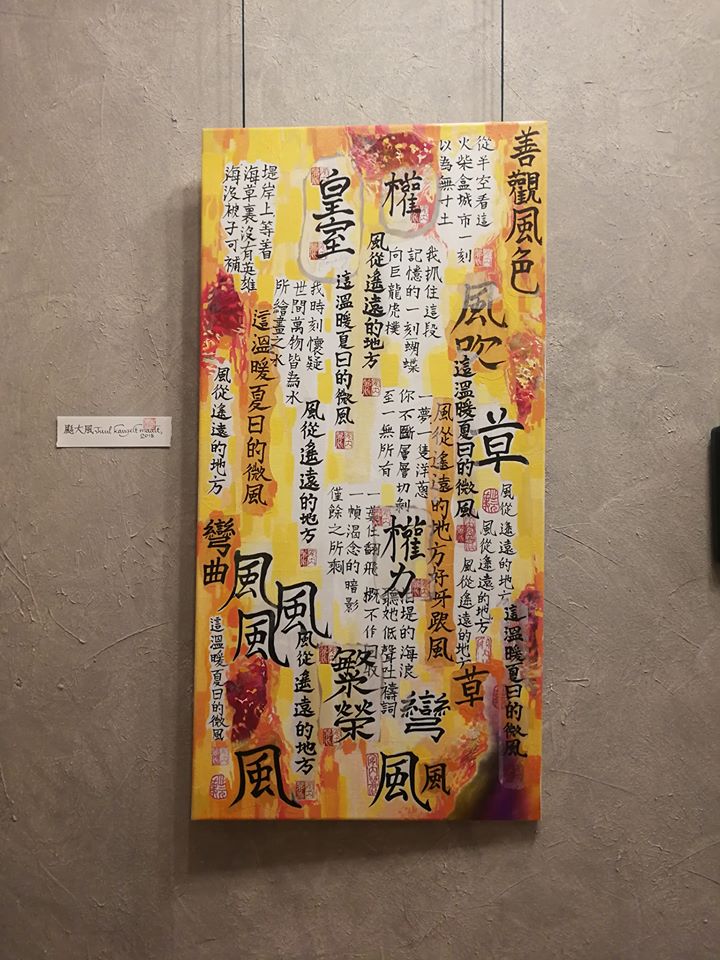 善觀風色
從半空看這
火柴盒城市一刻
以為無寸土
風吹
草
這溫暖夏日的微風
風從遙遠的地方
風從遙遠的地方
風從遙遠的地方
這溫暖夏日的微風
草
權
我抓住這段
記憶的一刻蝴蝶
向巨龍虎撲
一夢一隻洋蔥
你不斷層層切剝
至一無所有
風從遙遠的地方好呀跟風
權力
堤的海浪
聽她低聲吐禱詞
彎
風
風
皇室
風從遙遠的地方
這溫暖夏日的微風
我時刻懷疑
世間萬物皆為水
所繪畫之水
風從遙遠的地方
一葉仕翻飛
一幀渴念的暗影
僅餘之所剩
繁榮
堤岸上等着
海草裏沒有英雄
海沒被子可補
這溫暖夏日的微風
風從遙遠的地方
彎曲
風
風
風
風從遙遠的地方
這溫暖夏日的微風
風
颳大風 Juul Kangeit maalt,
2018